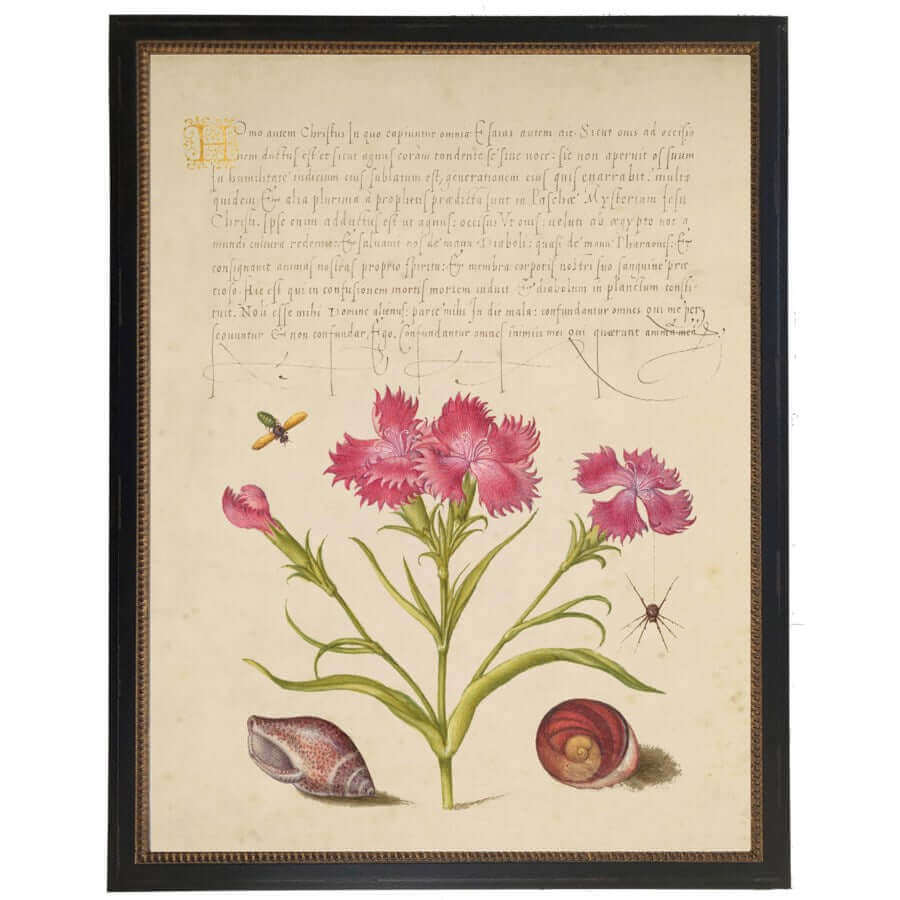 Homo autem Christus In quo capiuntur omnia: Esaias autem ait: Sicut ouis ad occisio
nem ductus est et sicut agnus coram tondente se sine voce: sic non aperuit os suum
In humilitate iudicium eius sublatum est, generationem eius quis enarrabit: multa
quidem & alia plurima a prophetis praedicta sunt in Paschae Mysterium Iesu
Christi. Ipse enim adductus est ut agnus: occisus Ut ouis: veluti ab aegypto nos a
mundi cultura redemit: & saluauit nos de manu Diaboli: quasi de manu Pharaonis: Et
consignauit animas nostras proprio spiritu: & membra corporis nostri suo sanguine prae
cioso. Hic est qui in confusionem mortis mortem induit & diabolum in planctum consti-
tuit. Noli esse mihi Domine alienus: parce mihi In die mala: confundantur omnes qui me per
sequuntur & non confundar, Ego. Confundantur omnes inimici mei qui quaerunt animam meā.